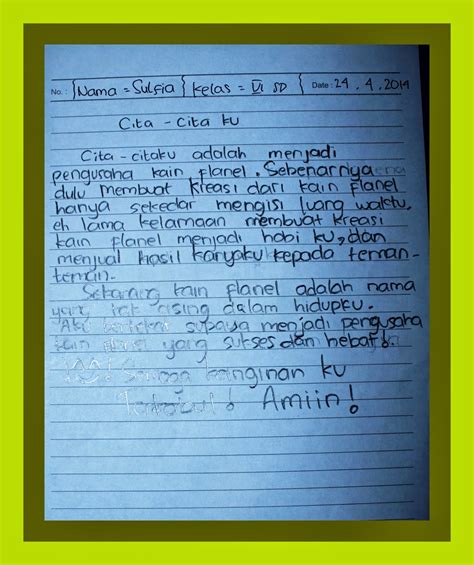 No.: Nama = Sulfia Kelas = VI SD Date: 24 . 4 . 2014
Cita - Cita ku
Cita - citaku adalah menjadi
pengusaha kain flanel. Sebenarnya
dulu membuat kreasi dari kain flanel
hanya sekedar mengisi luang waktu,
eh lama kelamaan membuat kreasi
kain flanel menjadi hobi ku, dan
menjual hasil karyaku kepada teman-
teman.
Sekarang kain flanel adalah nama
yang asing dalam hidupku.
Aku supaya menjadi pengusaha
kain flanel yang sukses dan hebat!
Semoga keinginan ku
Terkabul! Amiin!